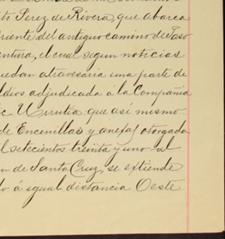 to Perez de Rivera, que abarca
oriente del antiguo camino de Paso
entura, el cual segun noticias
uedan atravesaria una parte de
dios adjudicado á la Compañia
ic Urrutia que asi mismo
de Encenillas y anexas otorgada
il setecientos treinta y uno al
n de Santa Cruz, se estiende
o á igual distancia Oeste